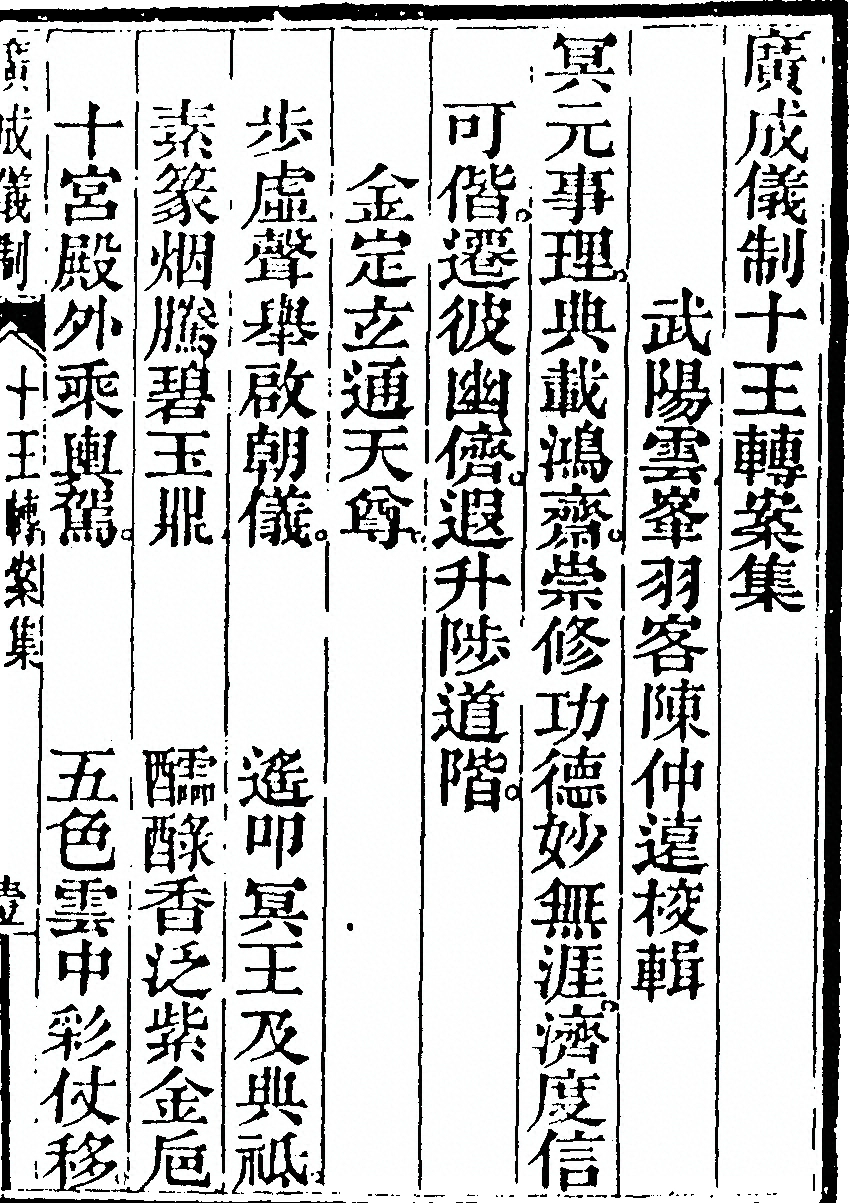 廣成儀制十王轉案集
武陽雲峯羽客陳仲遠校輯
冥元事理。典載鴻齋。崇修功德妙無涯。濟度信
可偕。遷彼幽儕。遐升陟道階。
金定玄通天尊
步虛聲舉啟朝儀。 遙叩冥王及典祗
素篆烟騰碧玉鼎 醹醁香泛紫金巵
十宮殿外乘輿駕。 五色雲中彩仗移
廣成儀制 十王轉案集 壹